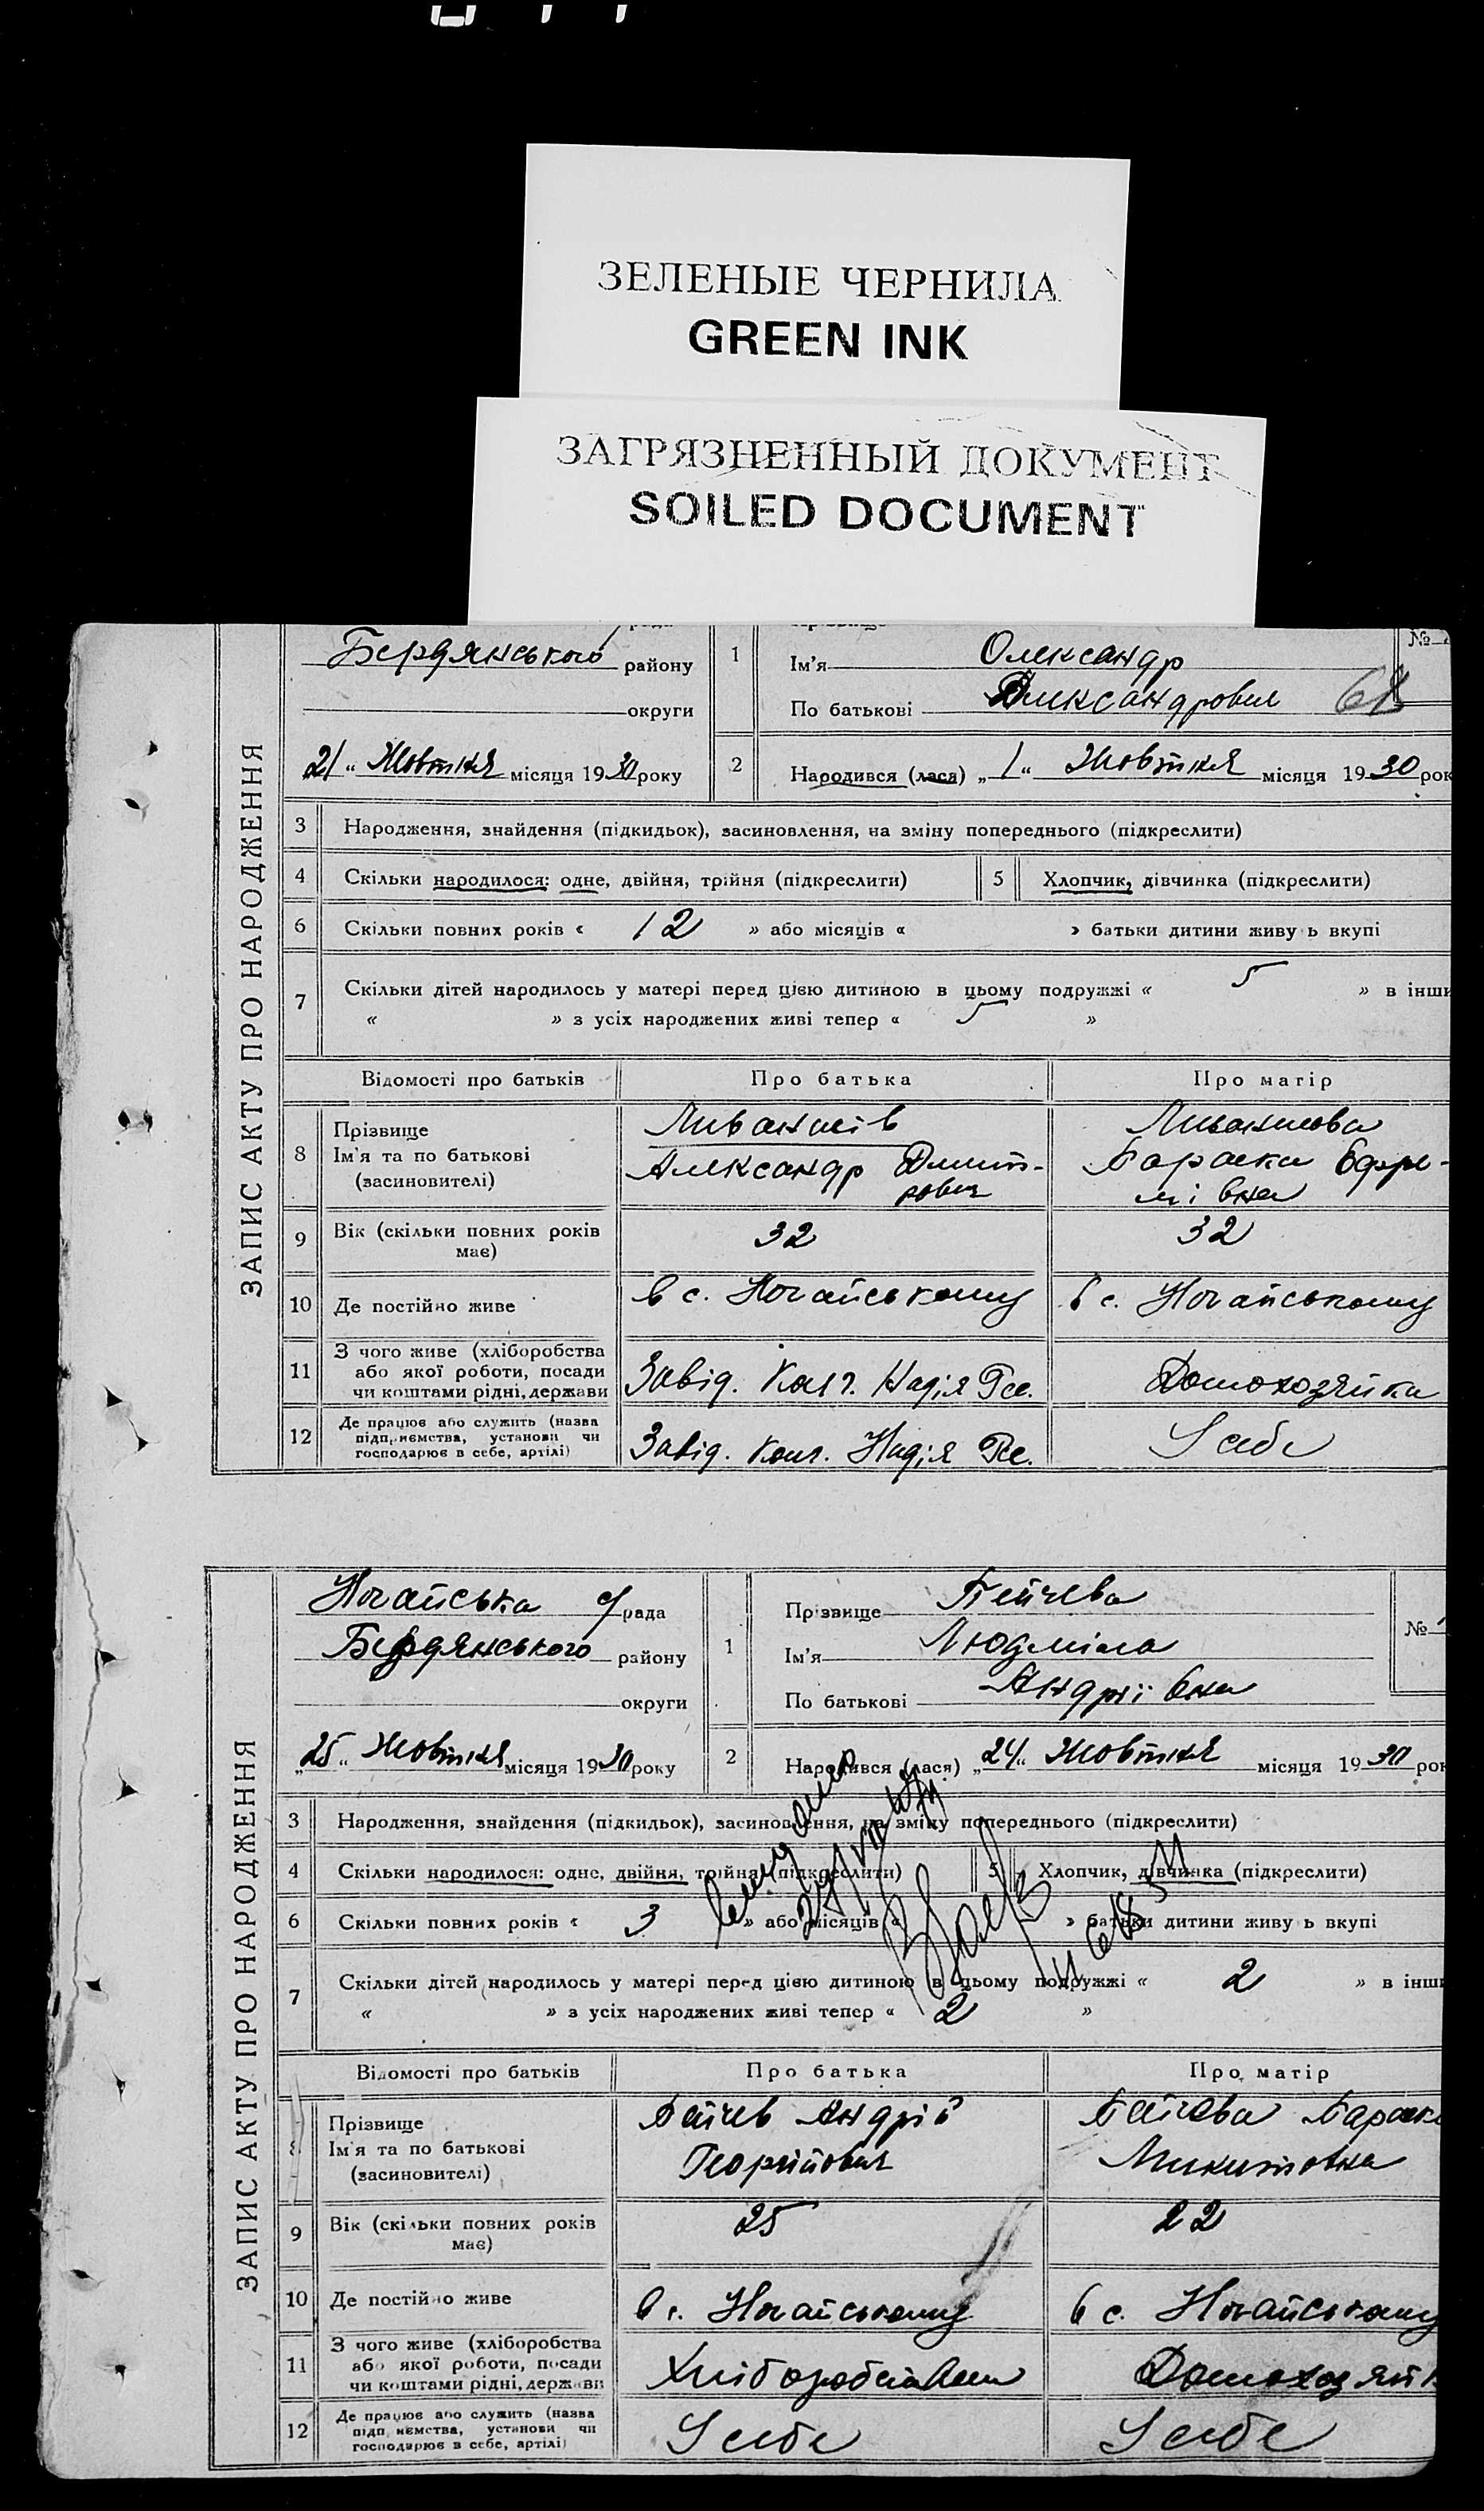 ЗЕЛЕНЫЕ ЧЕРНИЛА
GREEN INK
ЗАГРЯЗНЕННЫЙ ДОКУМЕНТ
SOILED DOCUMENT
ЗАПИС АКТУ ПРО НАРОДЖЕННЯ
Бердянського району
округи
„21“ Жовтня місяця 1930 року
1 Ім'я Олександр
По батькові Олександрович
№
2 Народився (лася) „1“ Жовтня місяця 1930 рок
3 Народження, знайдення (підкидьок), засиновлення, на зміну попереднього (підкреслити)
4 Скільки народилося: одне, двійня, трійня (підкреслити) 5 Хлопчик, дівчинка (підкреслити)
6 Скільки повних років « 12 » або місяців « » батьки дитини живу ь вкупі
7 Скільки дітей народилось у матері перед цією дитиною в цьому подружжі « 5 » в інши
« » з усіх народжених живі тепер « 5 »
Відомості про батьків Про батька Про матір
8 Прізвище
Ім'я та по батькові
(засиновителі)
Александр Дмит-
рович
9 Вік (скільки повних років має) 32 32
10 Де постійно живе в с. Ногайському в с. Ногайському
11 З чого живе (хліборобства
або якої роботи, посади
чи коштами рідні, держави
Завід. Надія Домохозяйка
12 Де працює або служить (назва
підприємства, установи чи
господарює в себе, артілі)
Завід. Надія У себе
ЗАПИС АКТУ ПРО НАРОДЖЕННЯ
Ногайська с/рада
Бердянського району
округи
„25“ Жовтня місяця 1930 року
1 Прізвище Пейчева
Ім'я Людміла
По батькові Андріївна
№
2 Народився (лася) „24“ Жовтня місяця 1930 рок
3 Народження, знайдення (підкидьок), засиновлення, на зміну попереднього (підкреслити)
4 Скільки народилося: одне, двійня, трійня (підкреслити) 5 Хлопчик, дівчинка (підкреслити)
6 Скільки повних років « 3 » або місяців « » батьки дитини живу ь вкупі
7 Скільки дітей народилось у матері перед цією дитиною в цьому подружжі « 2 » в інши
« » з усіх народжених живі тепер « 2 »
Відомості про батьків Про батька Про матір
8 Прізвище
Ім'я та по батькові
(засиновителі)
Пейчев Андрій
Георгійович
Пейчева Параск
Микитовна
9 Вік (скільки повних років має) 25 22
10 Де постійно живе в с. Ногайському в с. Ногайському
11 З чого живе (хліборобства
або якої роботи, посади
чи коштами рідні, держави
Хліборобством Домохозяйк
12 Де працює або служить (назва
підприємства, установи чи
господарює в себе, артілі)
У себе У себе